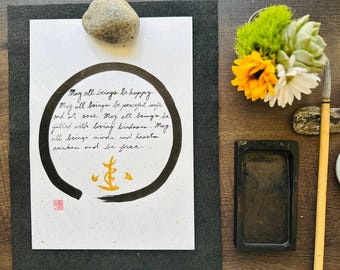 May all beings be happy.
May all beings be peaceful, safe
and at ease. May all beings be
filled with loving kindness. May
all beings minds and hearts
awaken and be free.